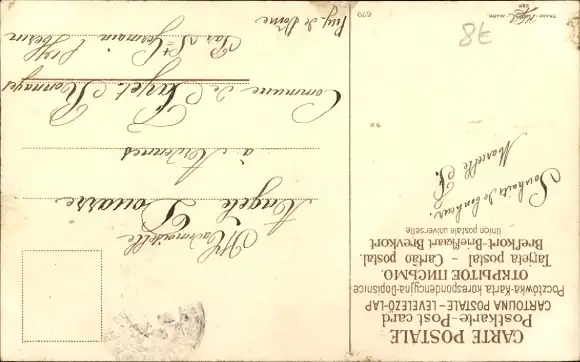 CARTE POSTALE
Postkarte-Post card
CARTOLINA POSTALE – LEVELEZŐ-LAP
Pocztówka-Karta korespondencyjna-Dopisnice
ОТКРЫТОЕ ПИСЬМО.
Tarjeta postal – Cartão postal.
Brefkort-Briefkaart Brevkort
Union postale universelle
Souhaits de bonheur.
Marcelle F.
Mademoiselle
Angèle Douarre
à Ardennes
Commune de
Par St Germain
Puy de Dôme
679
TRADE MARK
78